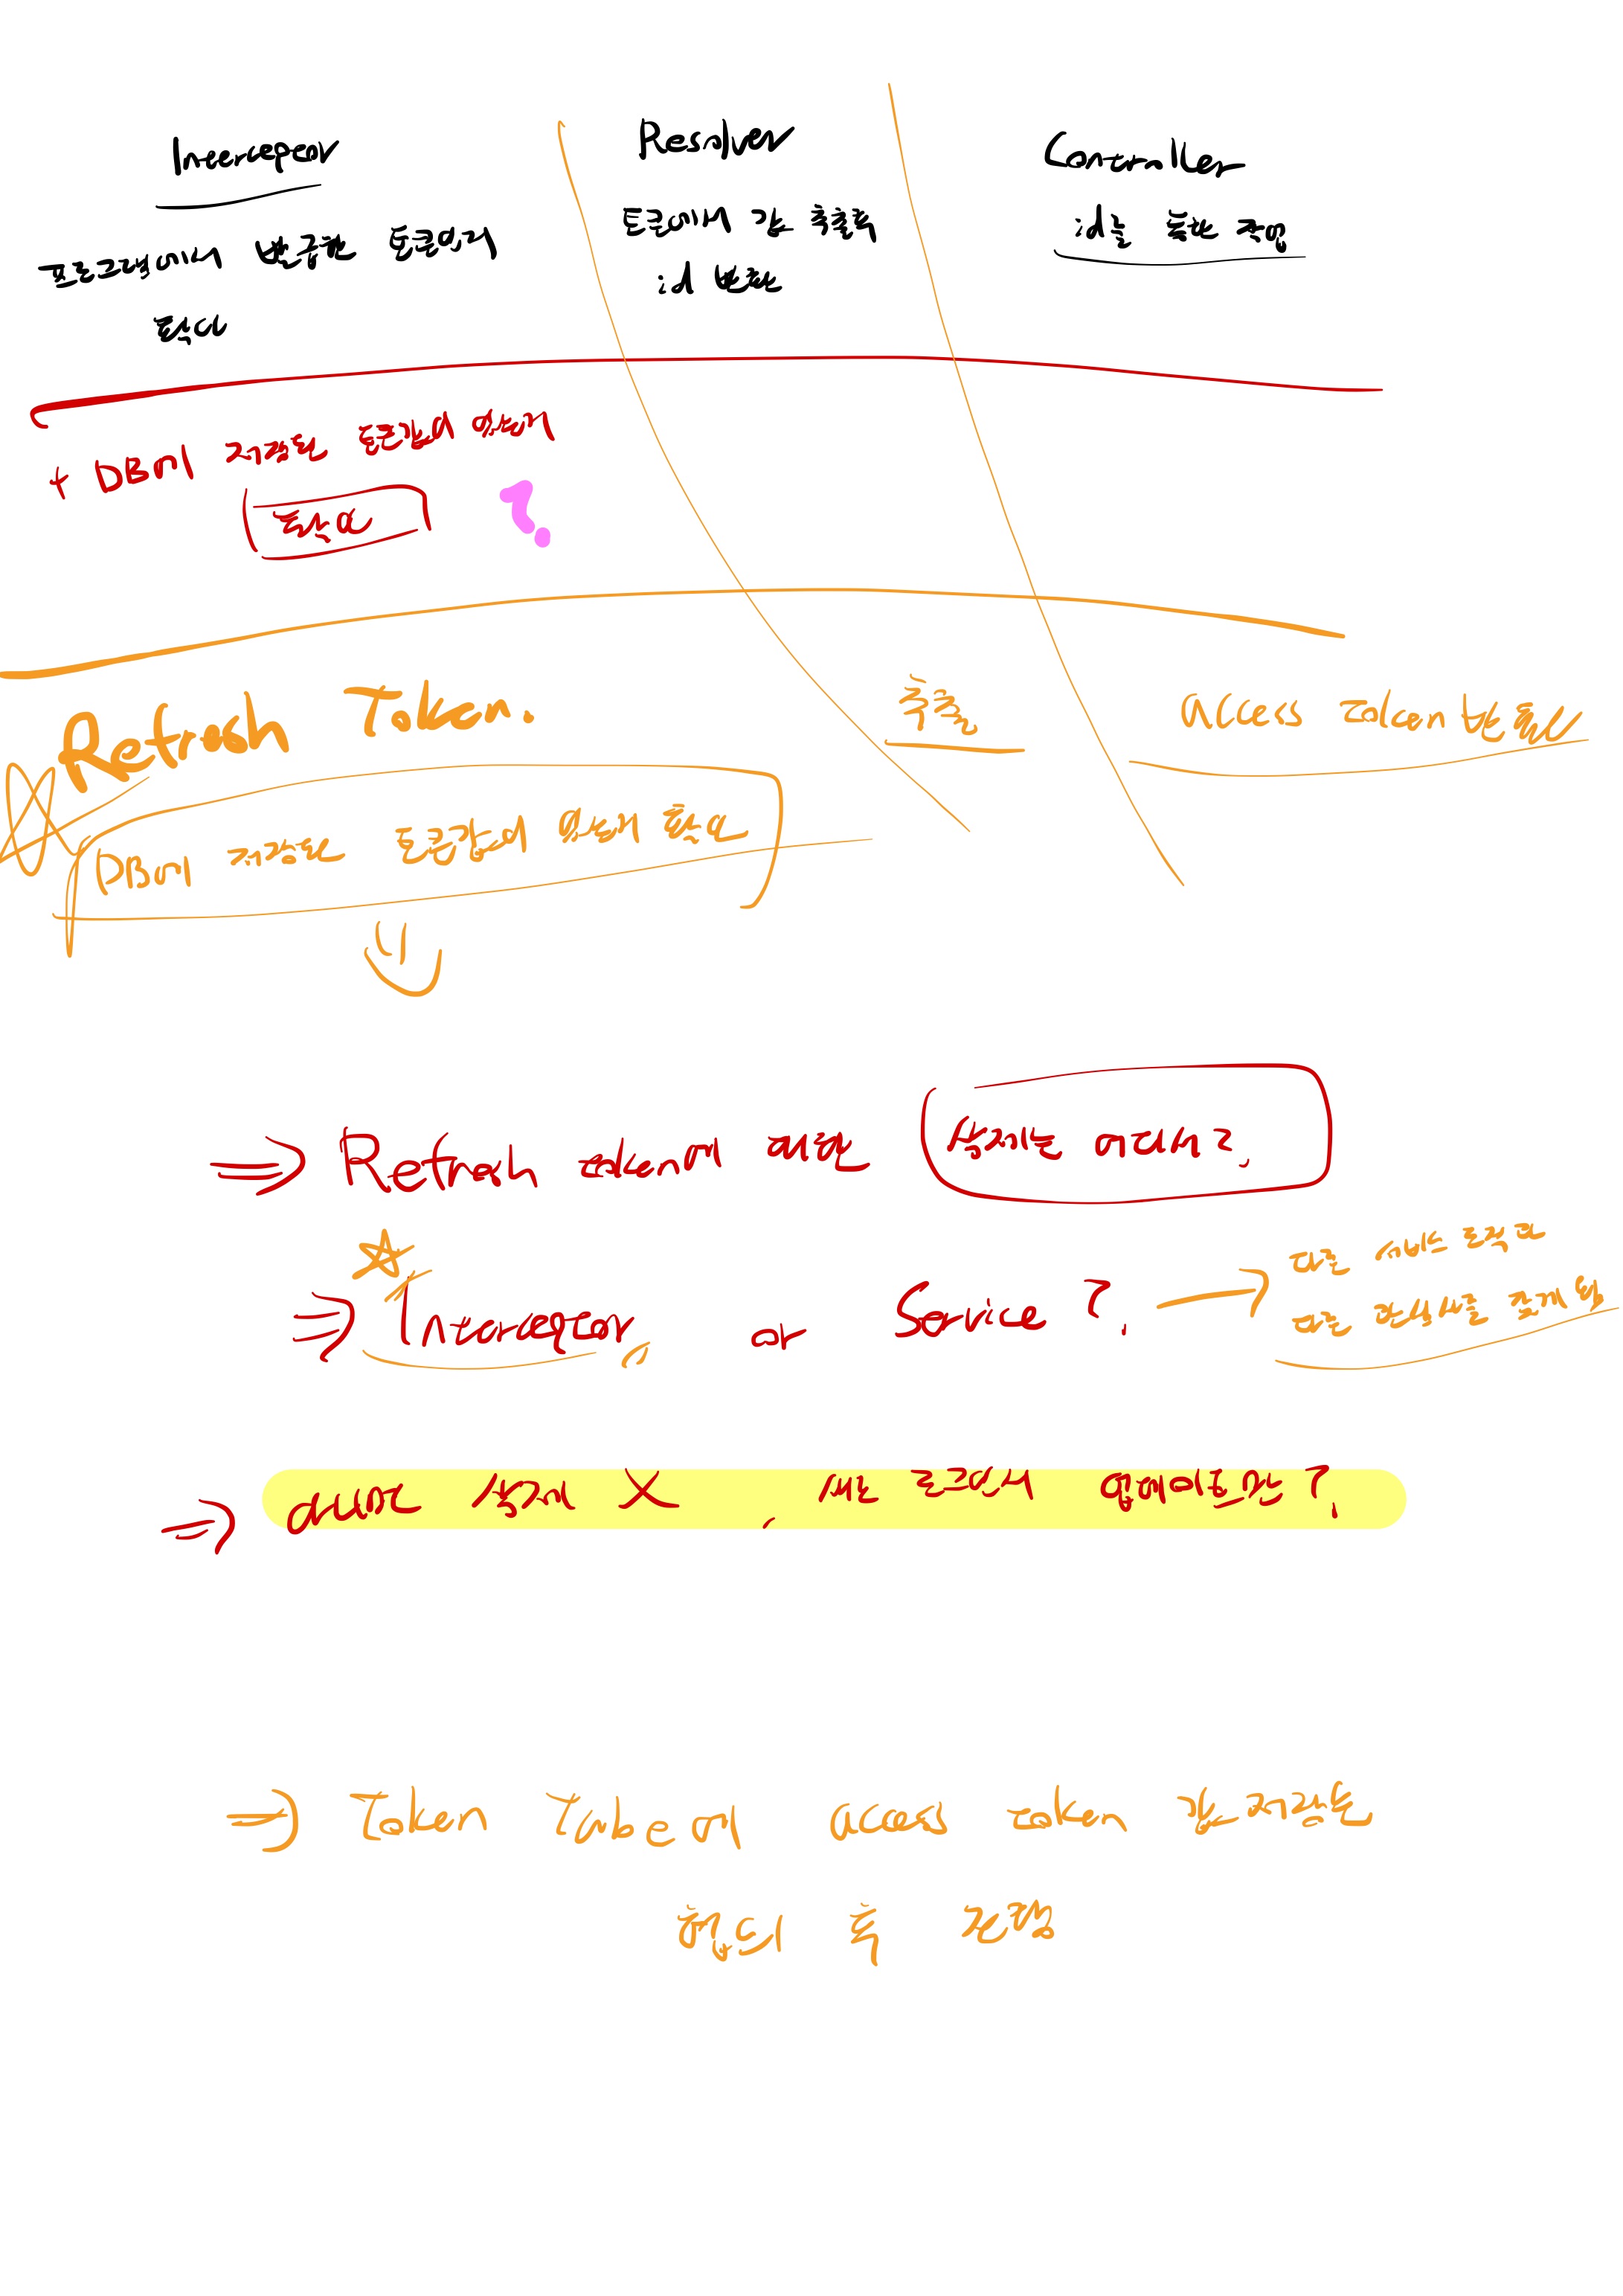 Interceptor
프로그램에서 발급한 토큰인지
확인
Resolver
토큰에서 값 추출후
id 반환
Controller
id를 통한 작업
+ DB에 저장된 토큰값이 있는지
확인 ?
Refresh Token.
DB에 저장된 토큰값이 있는지 확인
추출
Access token 반환
⇒ Refresh token에 대한 삭제는 어디서?
⇒ Interceptor or Service?
→ 다른 서비스 로직과
다른 관심사를 존재
⇒ 삭제 X, 새로운
⇒ Token Table에 access token 값 저장
협의 후 결정